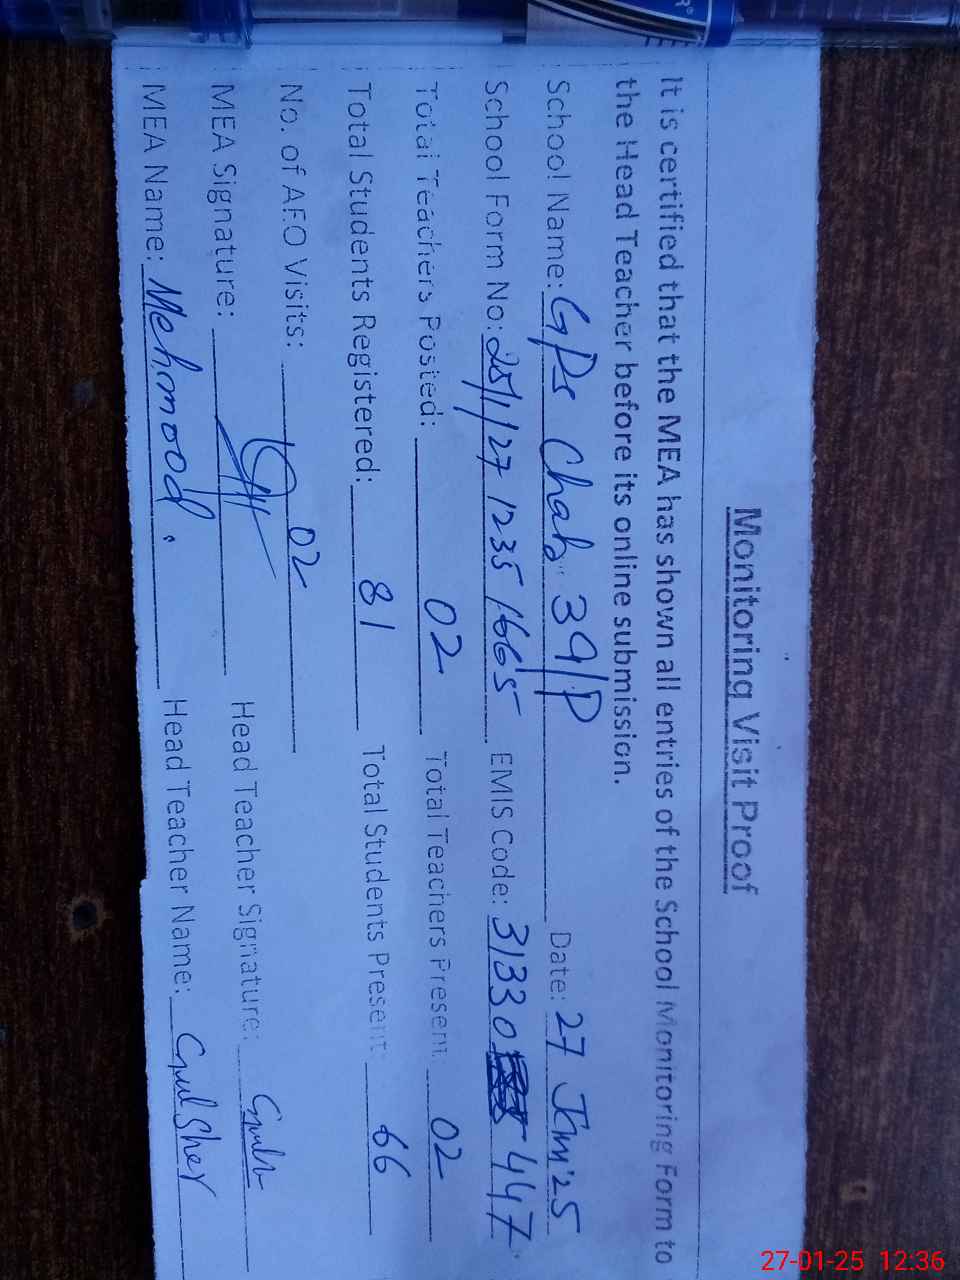 Monitoring Visit Proof
It is certified that the MEA has shown all entries of the School Monitoring Form to
the Head Teacher before its online submission.
School Name: GPS Chah 39/P Date: 27 Jan'25
School Form No: 25/1/27 1235 1665 EMIS Code: 31330 447
Total Teachers Posted: 02 Total Teachers Present: 02
Total Students Registered: 81 Total Students Present: 66
No. of AEO Visits: 02
MEA Signature: Head Teacher Signature:
MEA Name: Mehmood. Head Teacher Name: Gul Sher
27-01-25 12:36